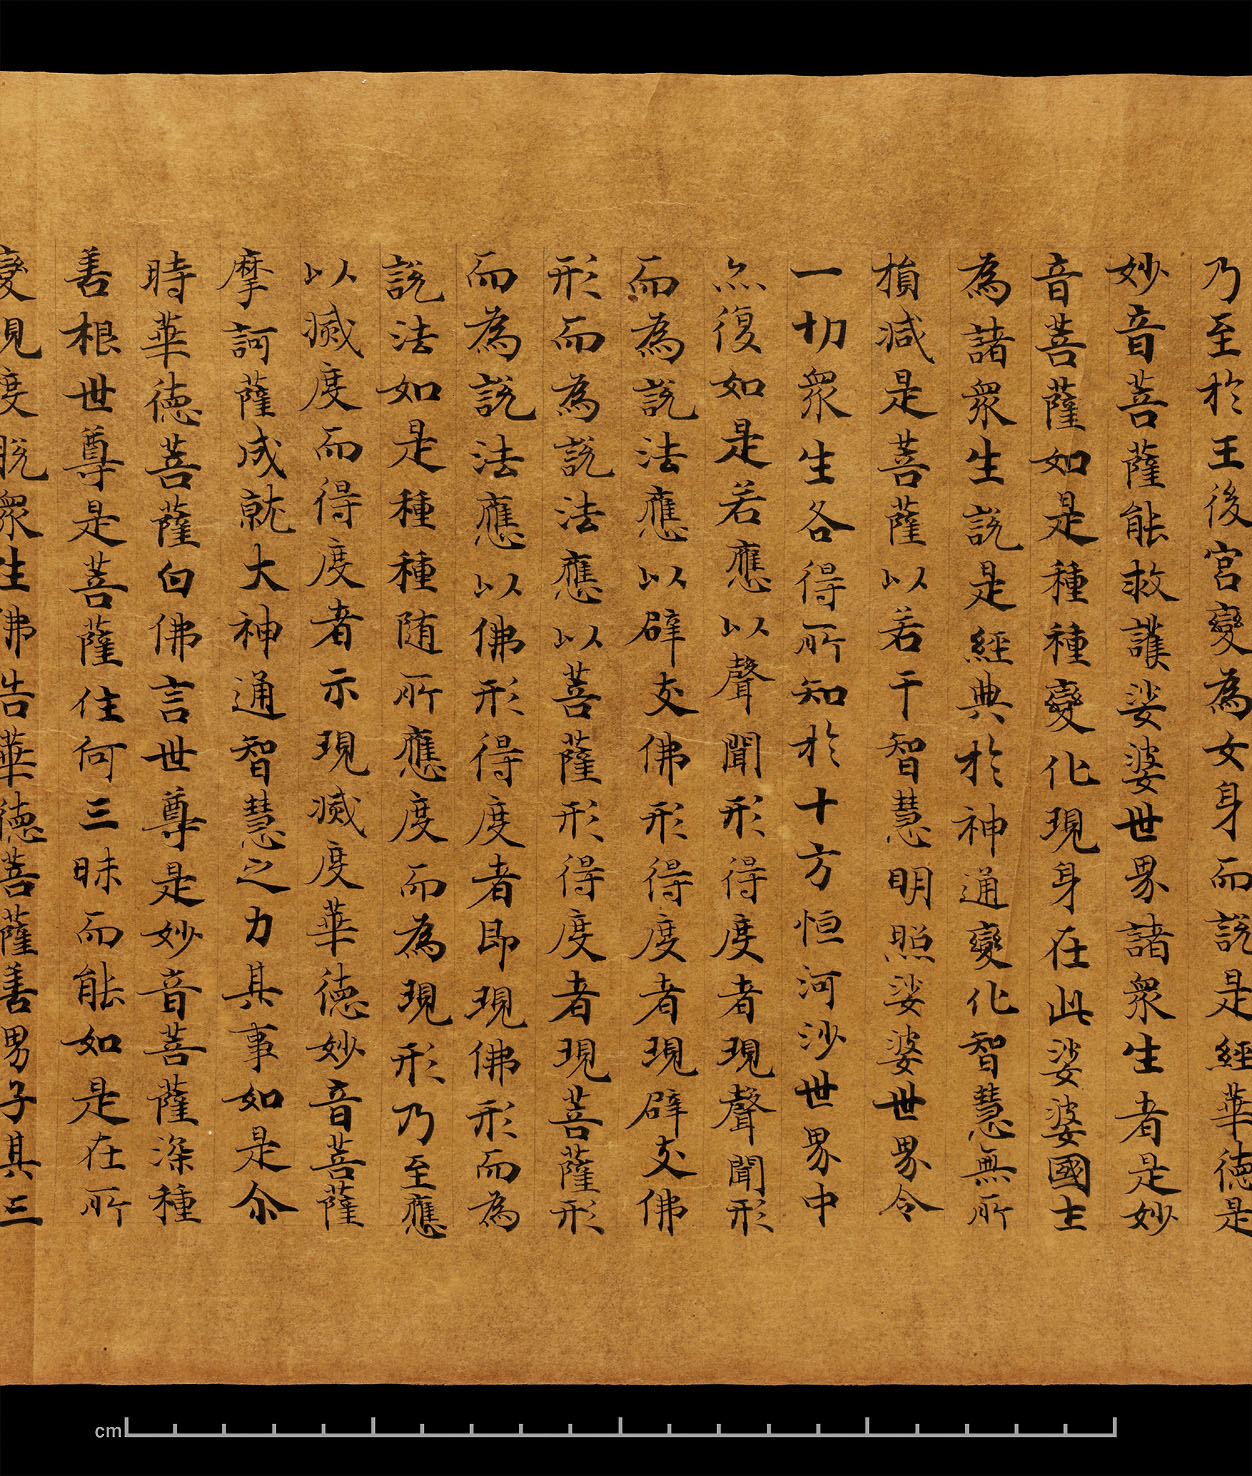 乃至於王後宮變為女身而說是經華德是
妙音菩薩能救護娑婆世界諸衆生者是妙
音菩薩如是種種變化現身在此娑婆國土
為諸衆生說是經典於神通變化智慧無所
損減是菩薩以若干智慧明照娑婆世界令
一切衆生各得所知於十方恒河沙世界中
亦復如是若應以聲聞形得度者現聲聞形
而為說法應以辟支佛形得度者現辟支佛
形而為說法應以菩薩形得度者現菩薩形
而為說法應以佛形得度者即現佛形而為
說法如是種種随所應度而為現形乃至應
以滅度而得度者示現滅度華德妙音菩薩
摩訶薩成就大神通智慧之力其事如是尒
時華德菩薩白佛言世尊是妙音菩薩深種
善根世尊是菩薩住何三昧而能如是在所
變現度脫衆生佛告華德菩薩善男子其三
cm